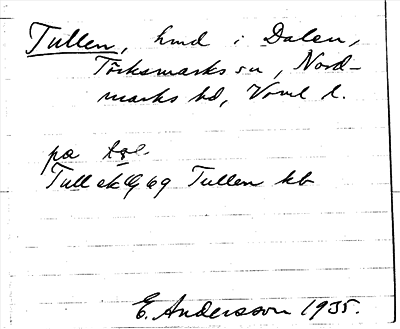 Tullen, hmd i Dalen,
Törksmarks sn, Nord-
marks hd, Vrml l.
på
Tull ek 69 Tullen kb
E. Andersson 1935.